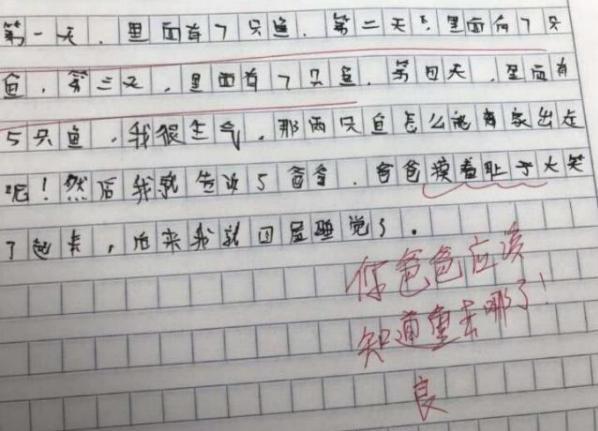 第一天，里面有7只鱼，第二天，里面有7只
鱼，第三天，里面有7只鱼，第四天，里面有
5只鱼，我很生气，那两只鱼怎么能离家出走
呢！然后我就告诉5爸爸，爸爸摸着肚子大笑
了起来，后来我就回屋睡觉了。
你爸爸应该
知道鱼去哪了！
良